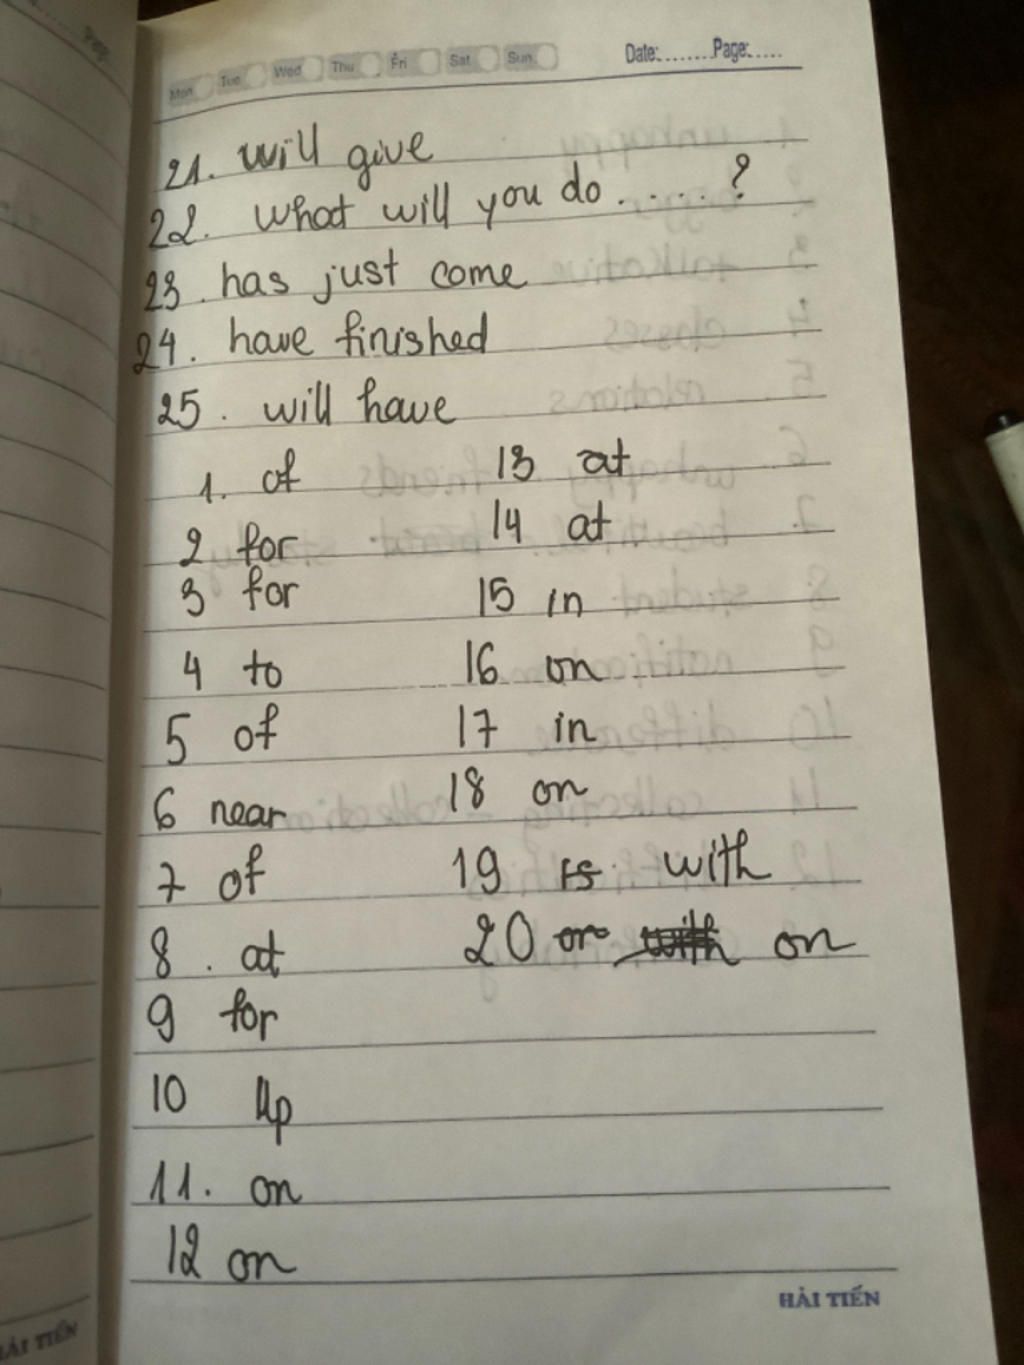 Mon Tue Wed Thu Fri Sat Sun Date:.......Page:.....
21. will give
22. what will you do ..... ?
23. has just come
24. have finished
25. will have
1. of 13 at
2 for 14 at
3 for 15 in
4 to 16 on
5 of 17 in
6 near 18 on
7 of 19 is with
8. at 20 or with on
9 for
10 up
11. on
12 on
HẢI TIẾN